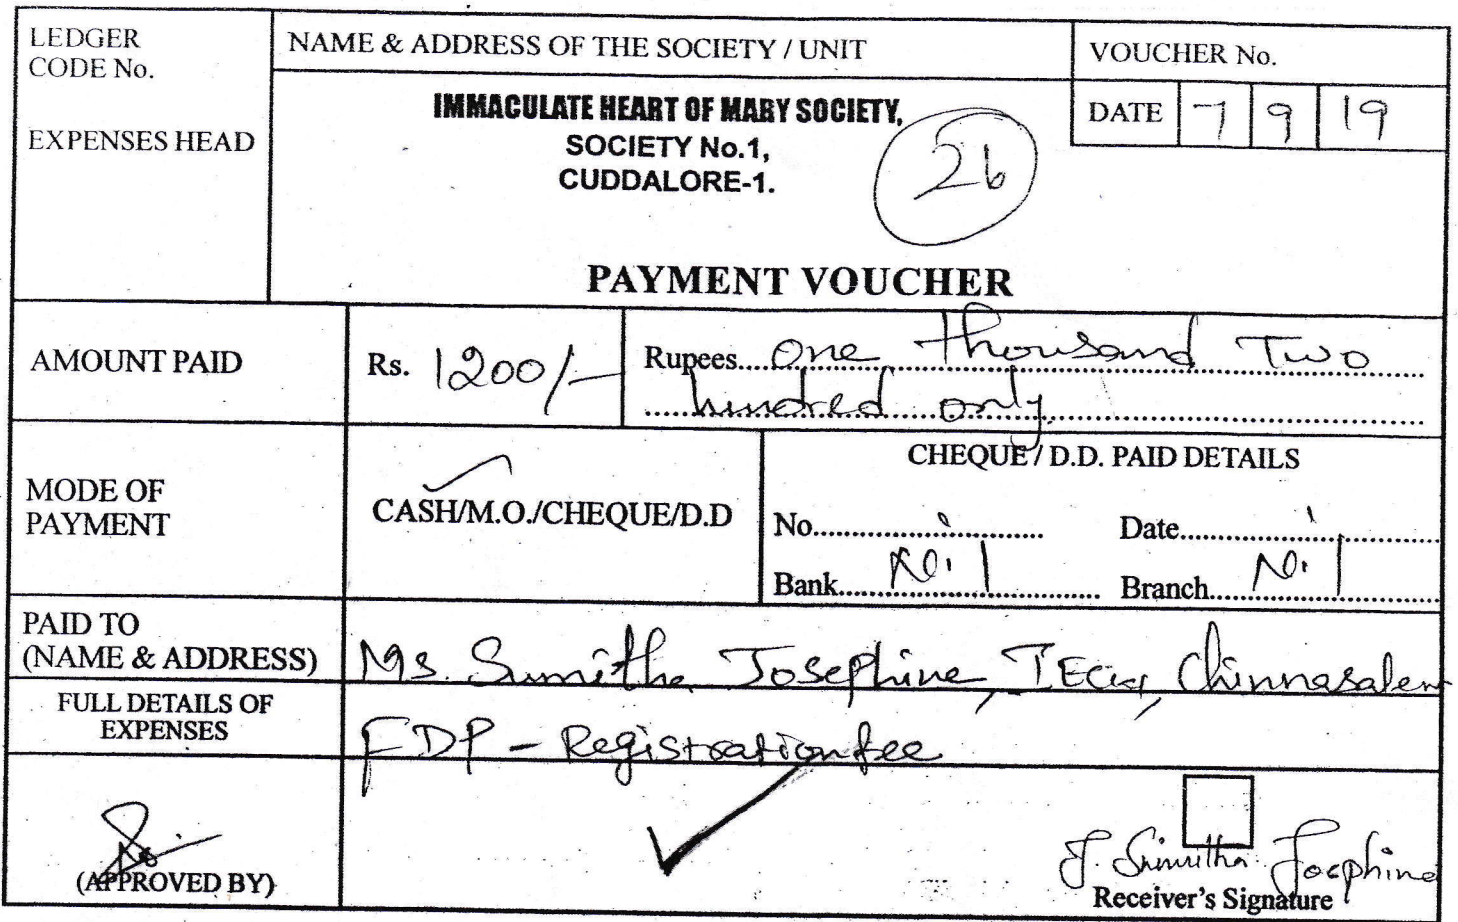 LEDGER
CODE No.
EXPENSES HEAD
NAME & ADDRESS OF THE SOCIETY / UNIT
IMMACULATE HEART OF MARY SOCIETY,
SOCIETY No.1,
CUDDALORE-1.
26
VOUCHER No.
DATE 7 9 19
PAYMENT VOUCHER
AMOUNT PAID
Rs. 1200/-
Rupees One thousand Two
hundred only.
MODE OF
PAYMENT
CASH/M.O./CHEQUE/D.D
CHEQUE / D.D. PAID DETAILS
No. Date
Bank Nil Branch Nil
PAID TO
(NAME & ADDRESS)
Ms. Sumitha Josephine, Chinnasalem
FULL DETAILS OF
EXPENSES
FDP - Registration fee
(APPROVED BY)
J. Sumitha Josephine
Receiver's Signature